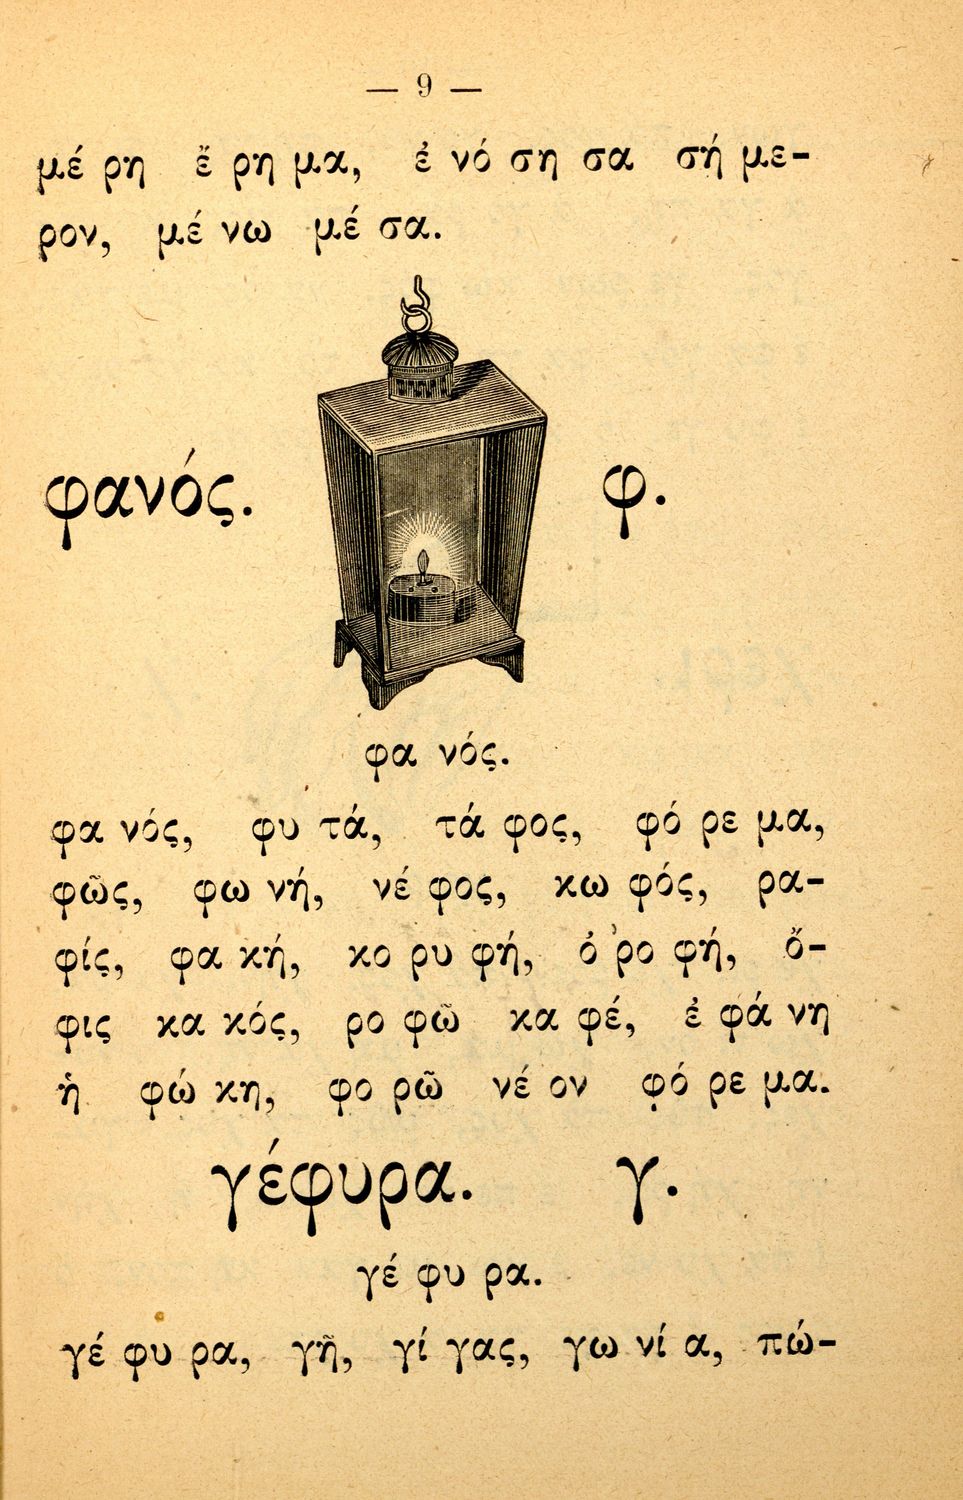 — 9 —
μέ ρη ἔ ρη μα, ἐ νό ση σα σή με-
ρον, μέ νω μέ σα.
φανός. φ.
φα νός.
φα νός, φυ τά, τά φος, φό ρε μα,
φῶς, φω νή, νέ φος, κω φός, ρα-
φίς, φα κή, κο ρυ φή, ὀ ρο φή, ὄ-
φις κα κός, ρο φῶ κα φέ, ἐ φά νη
ἡ φώ κη, φο ρῶ νέ ον φό ρε μα.
γέφυρα. γ.
γέ φυ ρα.
γέ φυ ρα, γῆ, γί γας, γω νί α, πώ-